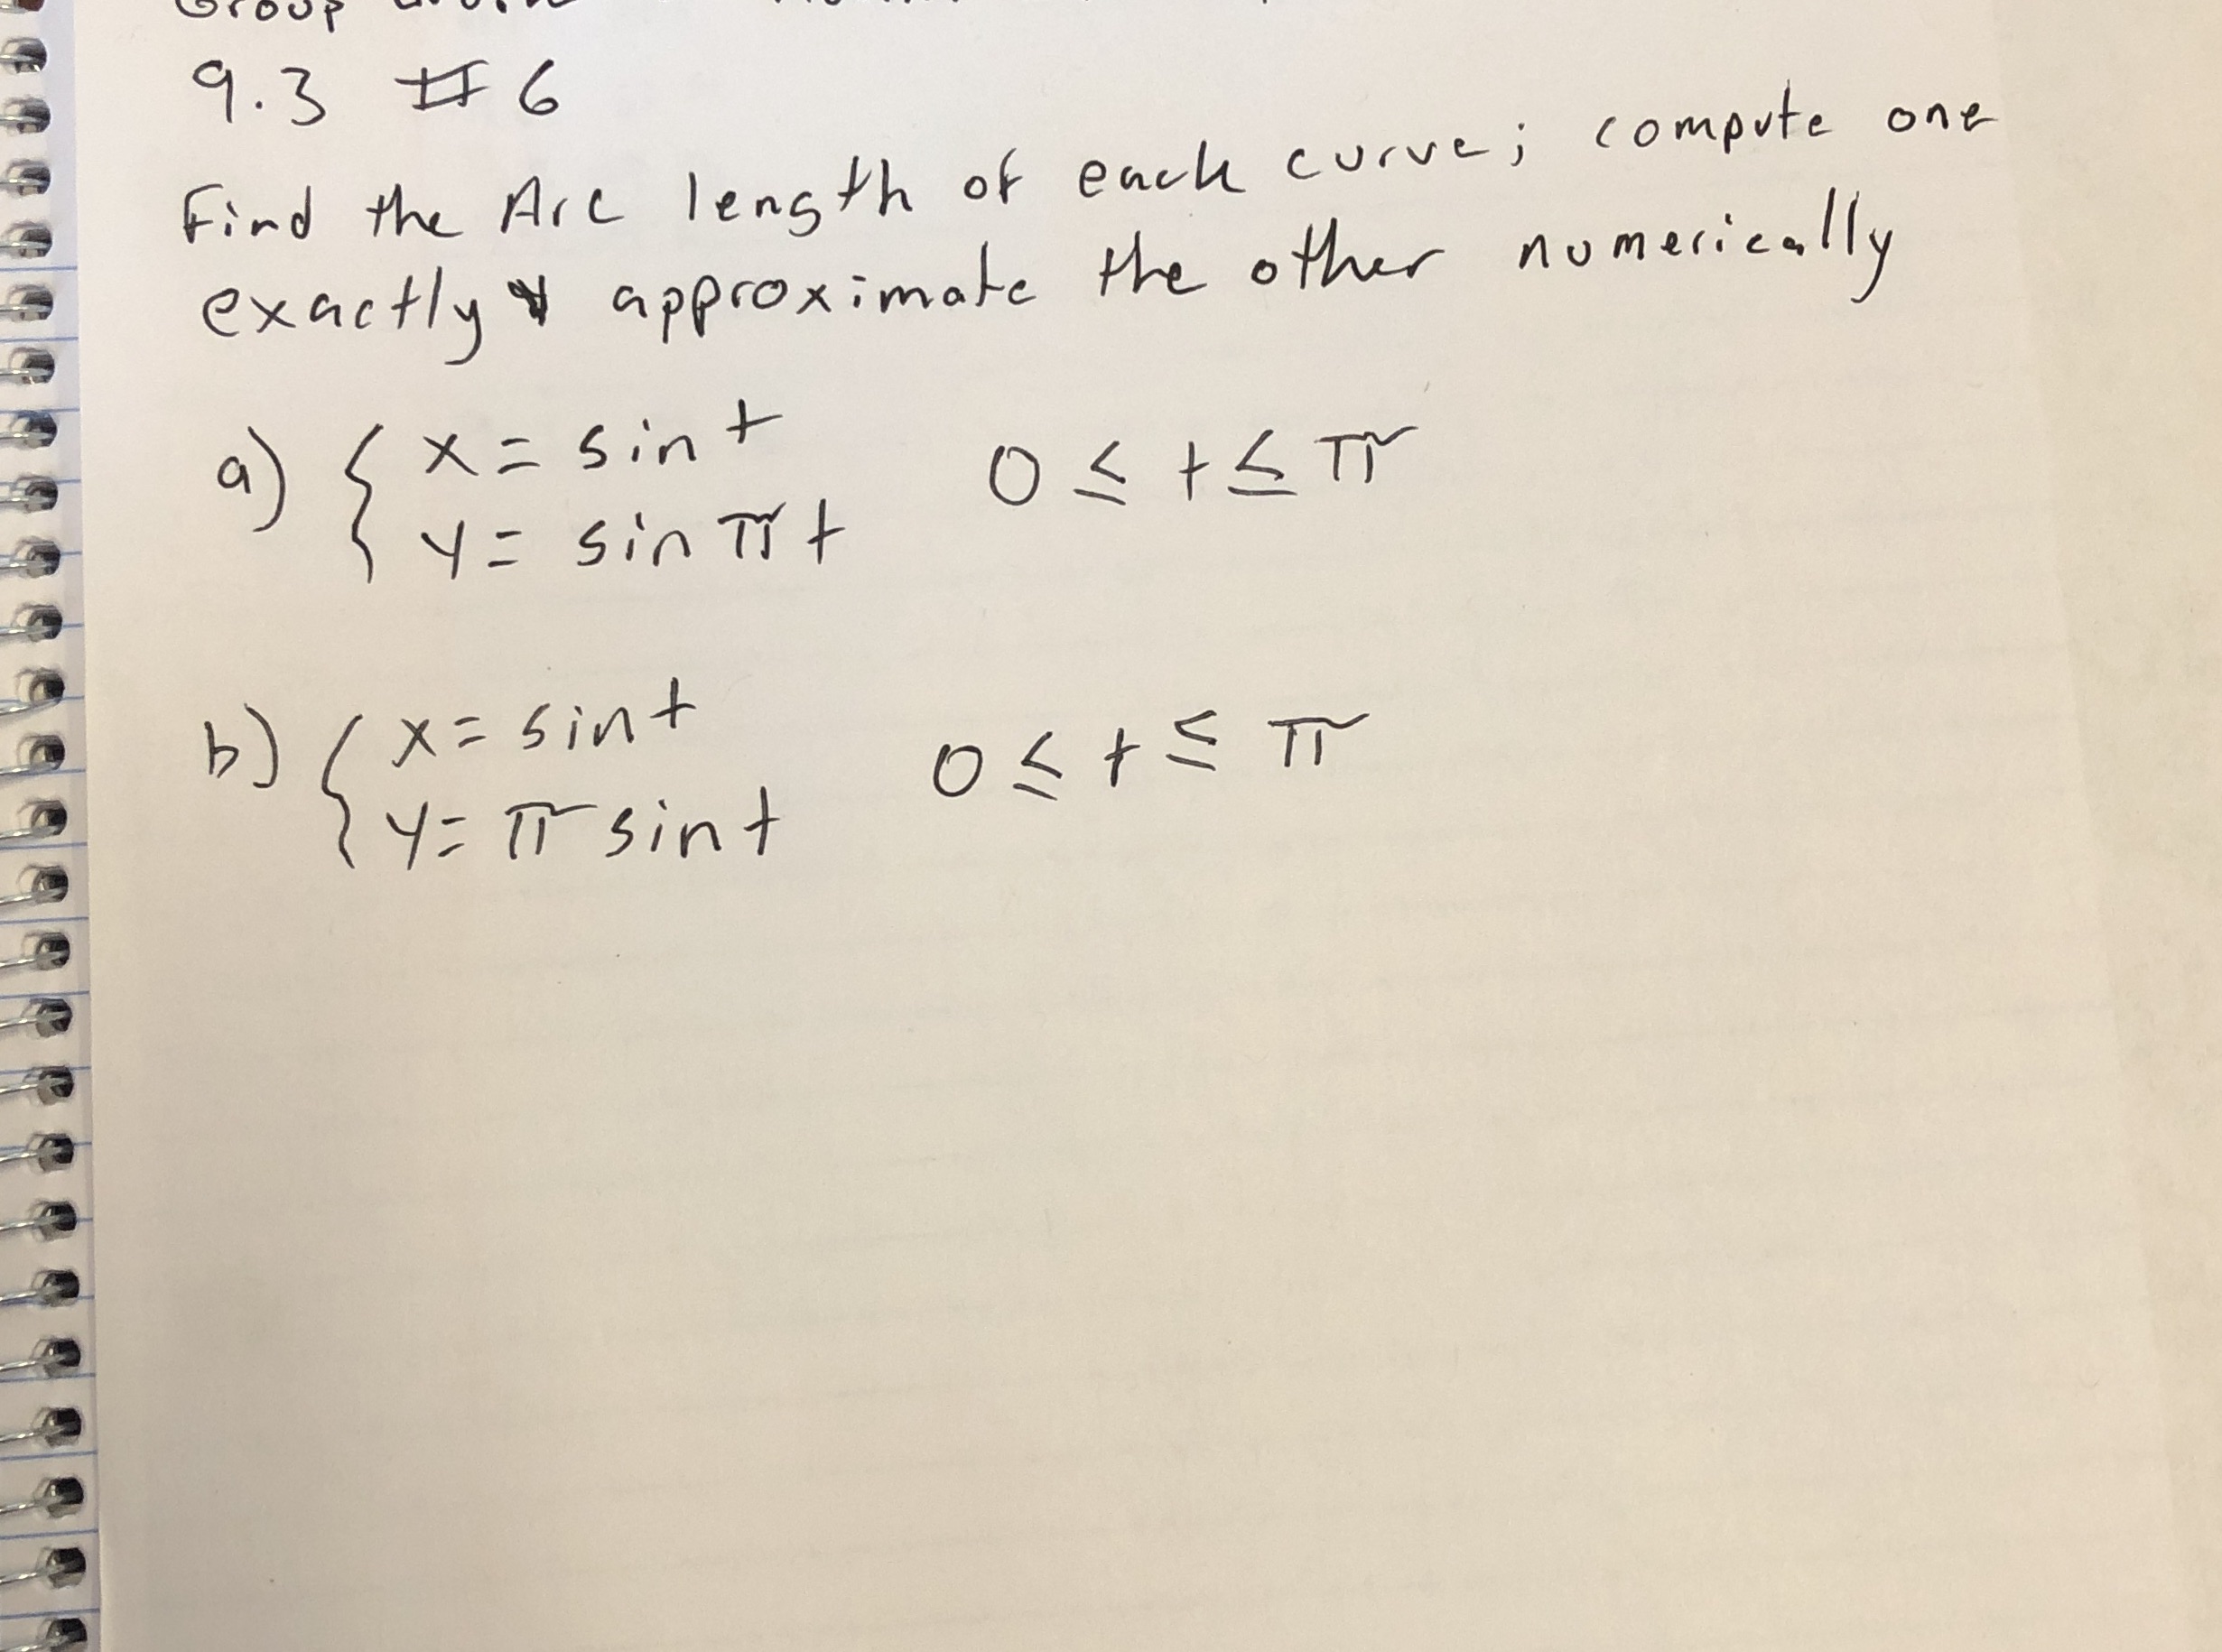 Group
9.3 # 6
Find the Arc length of each curve; compute one
exactly & approximate the other numerically
a) { x = sin t 0 ≤ t ≤ π
y = sin π t
b) { x = sin t 0 ≤ t ≤ π
y = π sin t